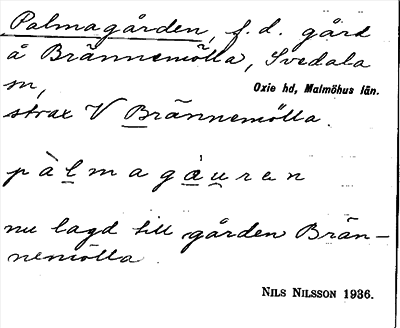 Palmagården, f.d. gård
å Brännemölla, Svedala
sn,
Oxie hd, Malmöhus län.
strax V Brännemölla.
pàlmagáuren
nu lagd till gården Brän-
nemölla.
NILS NILSSON 1936.